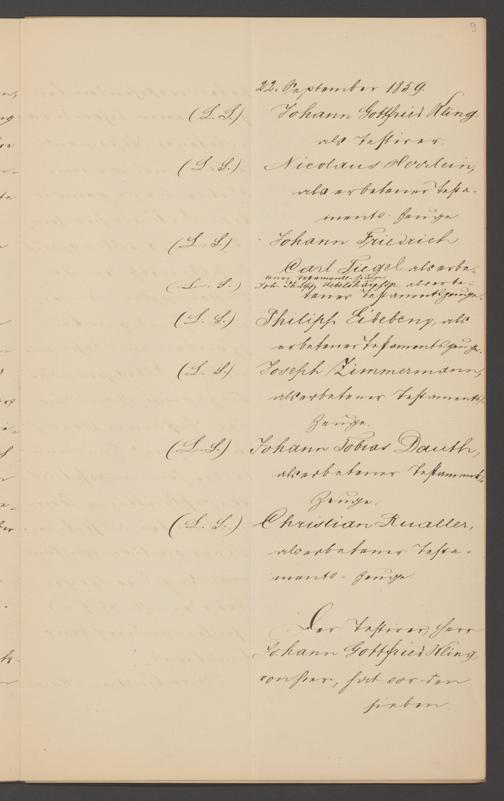 9
22. September 1859.
(L. S.) Johann Gottfried Kling
als Testirer.
(L. S.) Nicolaus
als erbetener Testa-
ments-Zeuge
(L. S.) Johann Friedrich
Carl Tiegel als erbe-
tener Testaments-Zeuge
(L. S.) Joh. Philipp als erbe-
tener Testamentszeuge.
(L. S.) Philipp als
erbetener Testamentszeuge.
(L. S.) Joseph Zimmermann,
als erbetener Testaments-
Zeuge.
(L. S.) Johann Tobias Dauth,
als erbetener Testaments-
Zeuge.
(L. S.) Christian
als erbetener Testa-
ments-Zeuge.
Der Testirer, Herr
Johann Gottfried Kling
von hier, hat vor den
sieben